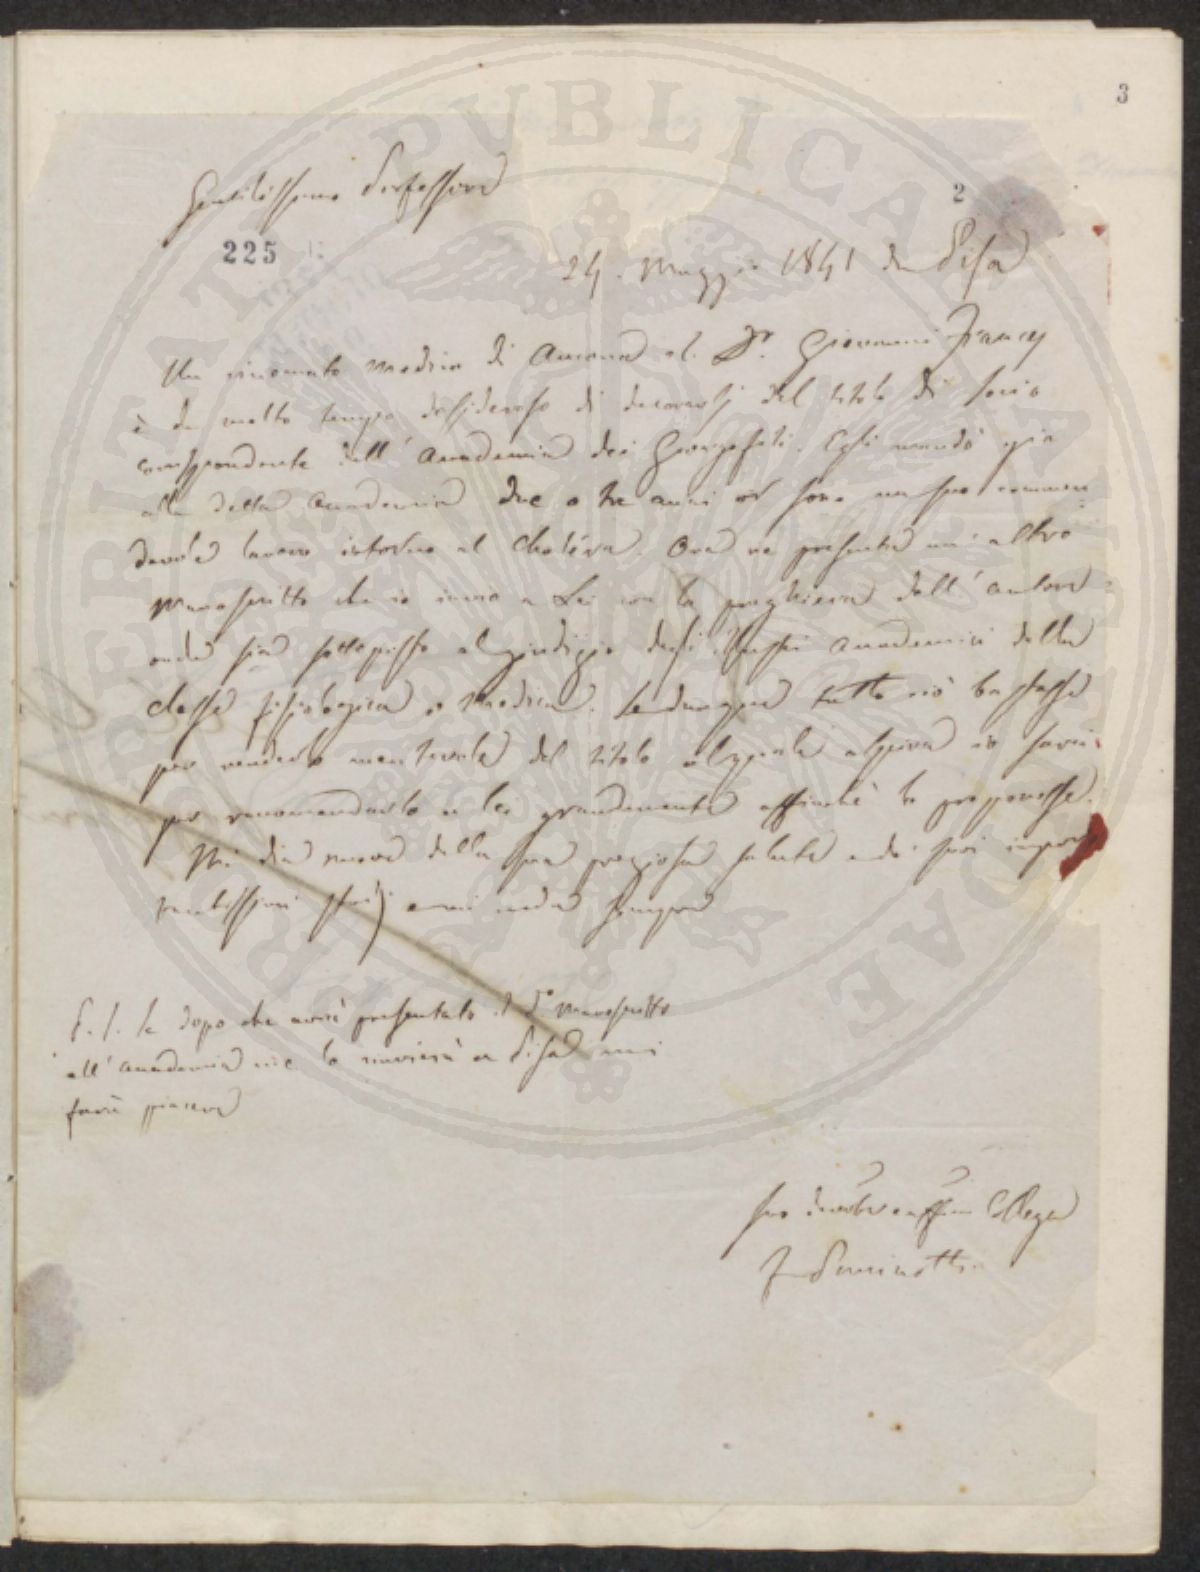 3
2
225
Gentilissimo Professore
24. Maggio 1841 da Pisa
Un rinomato medico di Ancona il Dr. Giovanni
è da molto tempo desideroso di decorarsi del titolo di socio
corrispondente dell' Accademia dei Georgofili. Egli mandò già
alla detta Accademia due o tre anni or sono un suo commen
devole lavoro intorno al Cholèra. Ora ne presenta un' altro
Manoscritto che io invio a Lei con la preghiera dell' autore
onde sia sottoposto al giudizio degli Accademici della
classe fisiologica e Medica. tutto ciò bastasse
per renderlo meritevole del titolo al quale aspira io sarei
per raccomandarlo a lei grandemente affinchè lo proponesse.
Mi dia nuove della sua preziosa salute e de' suoi
studj e mi creda sempre
P. S. Se dopo che avrà presentato il do Manoscritto
all' Accademia me lo rinvierà a Pisa mi
farà piacere
Suo Collega
PUBLICAE